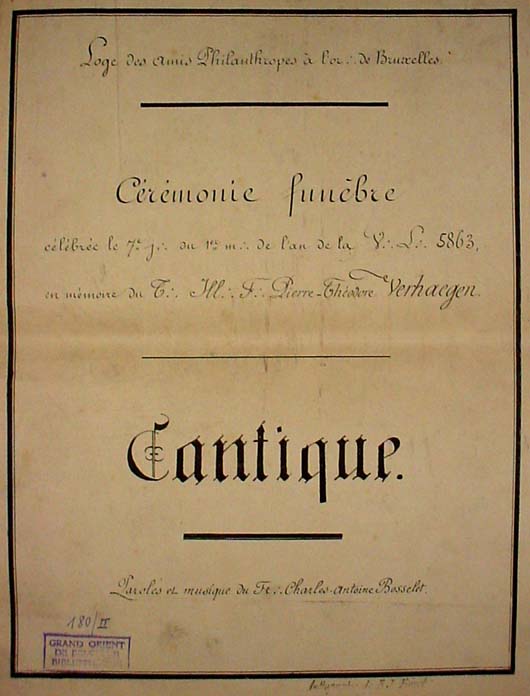 Loge des Amis Philanthropes à l'or∴ de Bruxelles.
Cérémonie funèbre
célébrée le 7e j∴ du 1er m∴ de l'an de la V∴ L∴ 5863,
en mémoire du T∴ Ill∴ F∴ Pierre-Théodore Verhaegen.
Cantique.
Paroles et musique du Fr∴ Charles-Antoine Bosselet.
180/II
GRAND ORIENT
DE